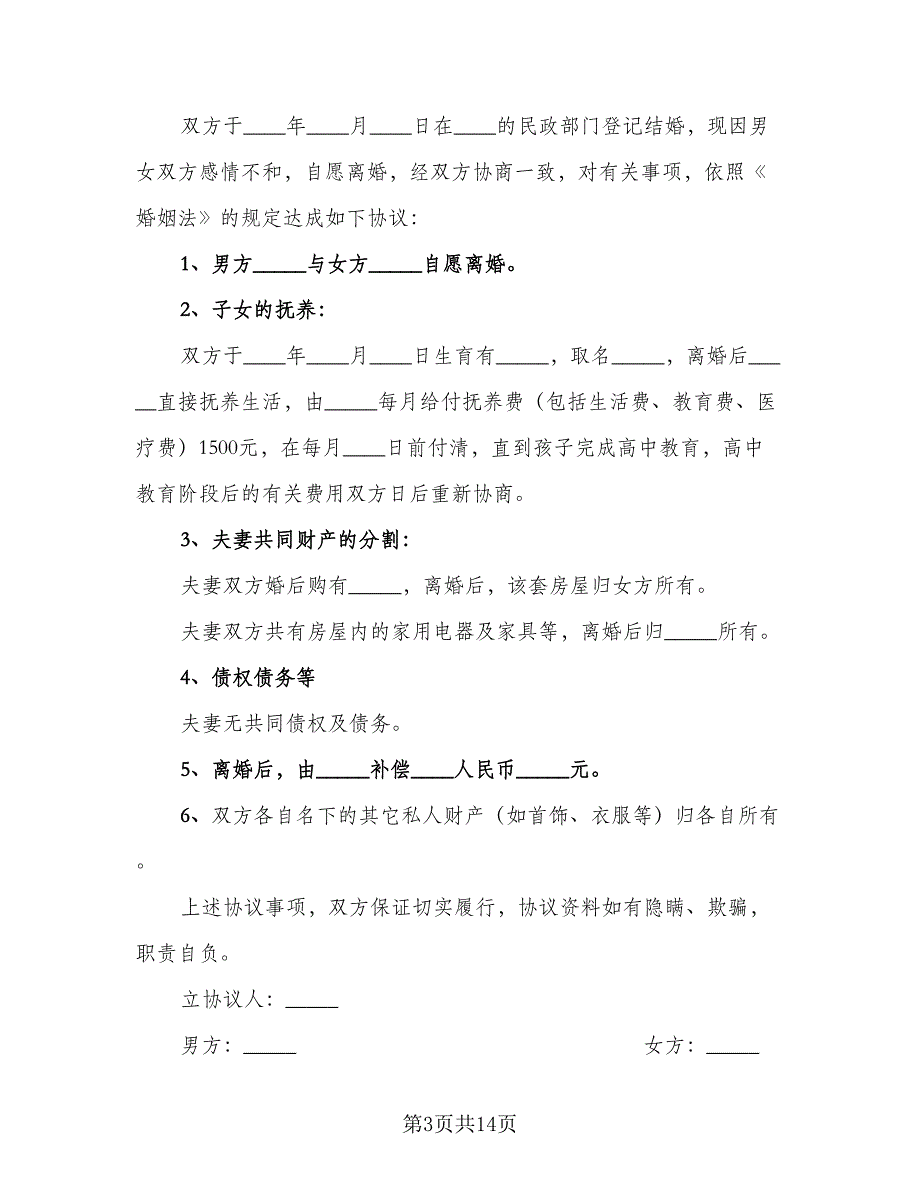 双方于____年____月____日在____的民政部门登记结婚，现因男
女双方感情不和，自愿离婚，经双方协商一致，对有关事项，依照《
婚姻法》的规定达成如下协议：
1、男方_____与女方_____自愿离婚。
2、子女的抚养：
双方于____年____月____日生育有_____，取名_____，离婚后___
__直接抚养生活，由_____每月给付抚养费（包括生活费、教育费、医
疗费）1500元，在每月____日前付清，直到孩子完成高中教育，高中
教育阶段后的有关费用双方日后重新协商。
3、夫妻共同财产的分割：
夫妻双方婚后购有_____，离婚后，该套房屋归女方所有。
夫妻双方共有房屋内的家用电器及家具等，离婚后归_____所有。
4、债权债务等
夫妻无共同债权及债务。
5、离婚后，由_____补偿____人民币_____元。
6、双方各自名下的其它私人财产（如首饰、衣服等）归各自所有
。
上述协议事项，双方保证切实履行，协议资料如有隐瞒、欺骗，
职责自负。
立协议人：_____
男方：_____ 女方：_____
第3页共14页